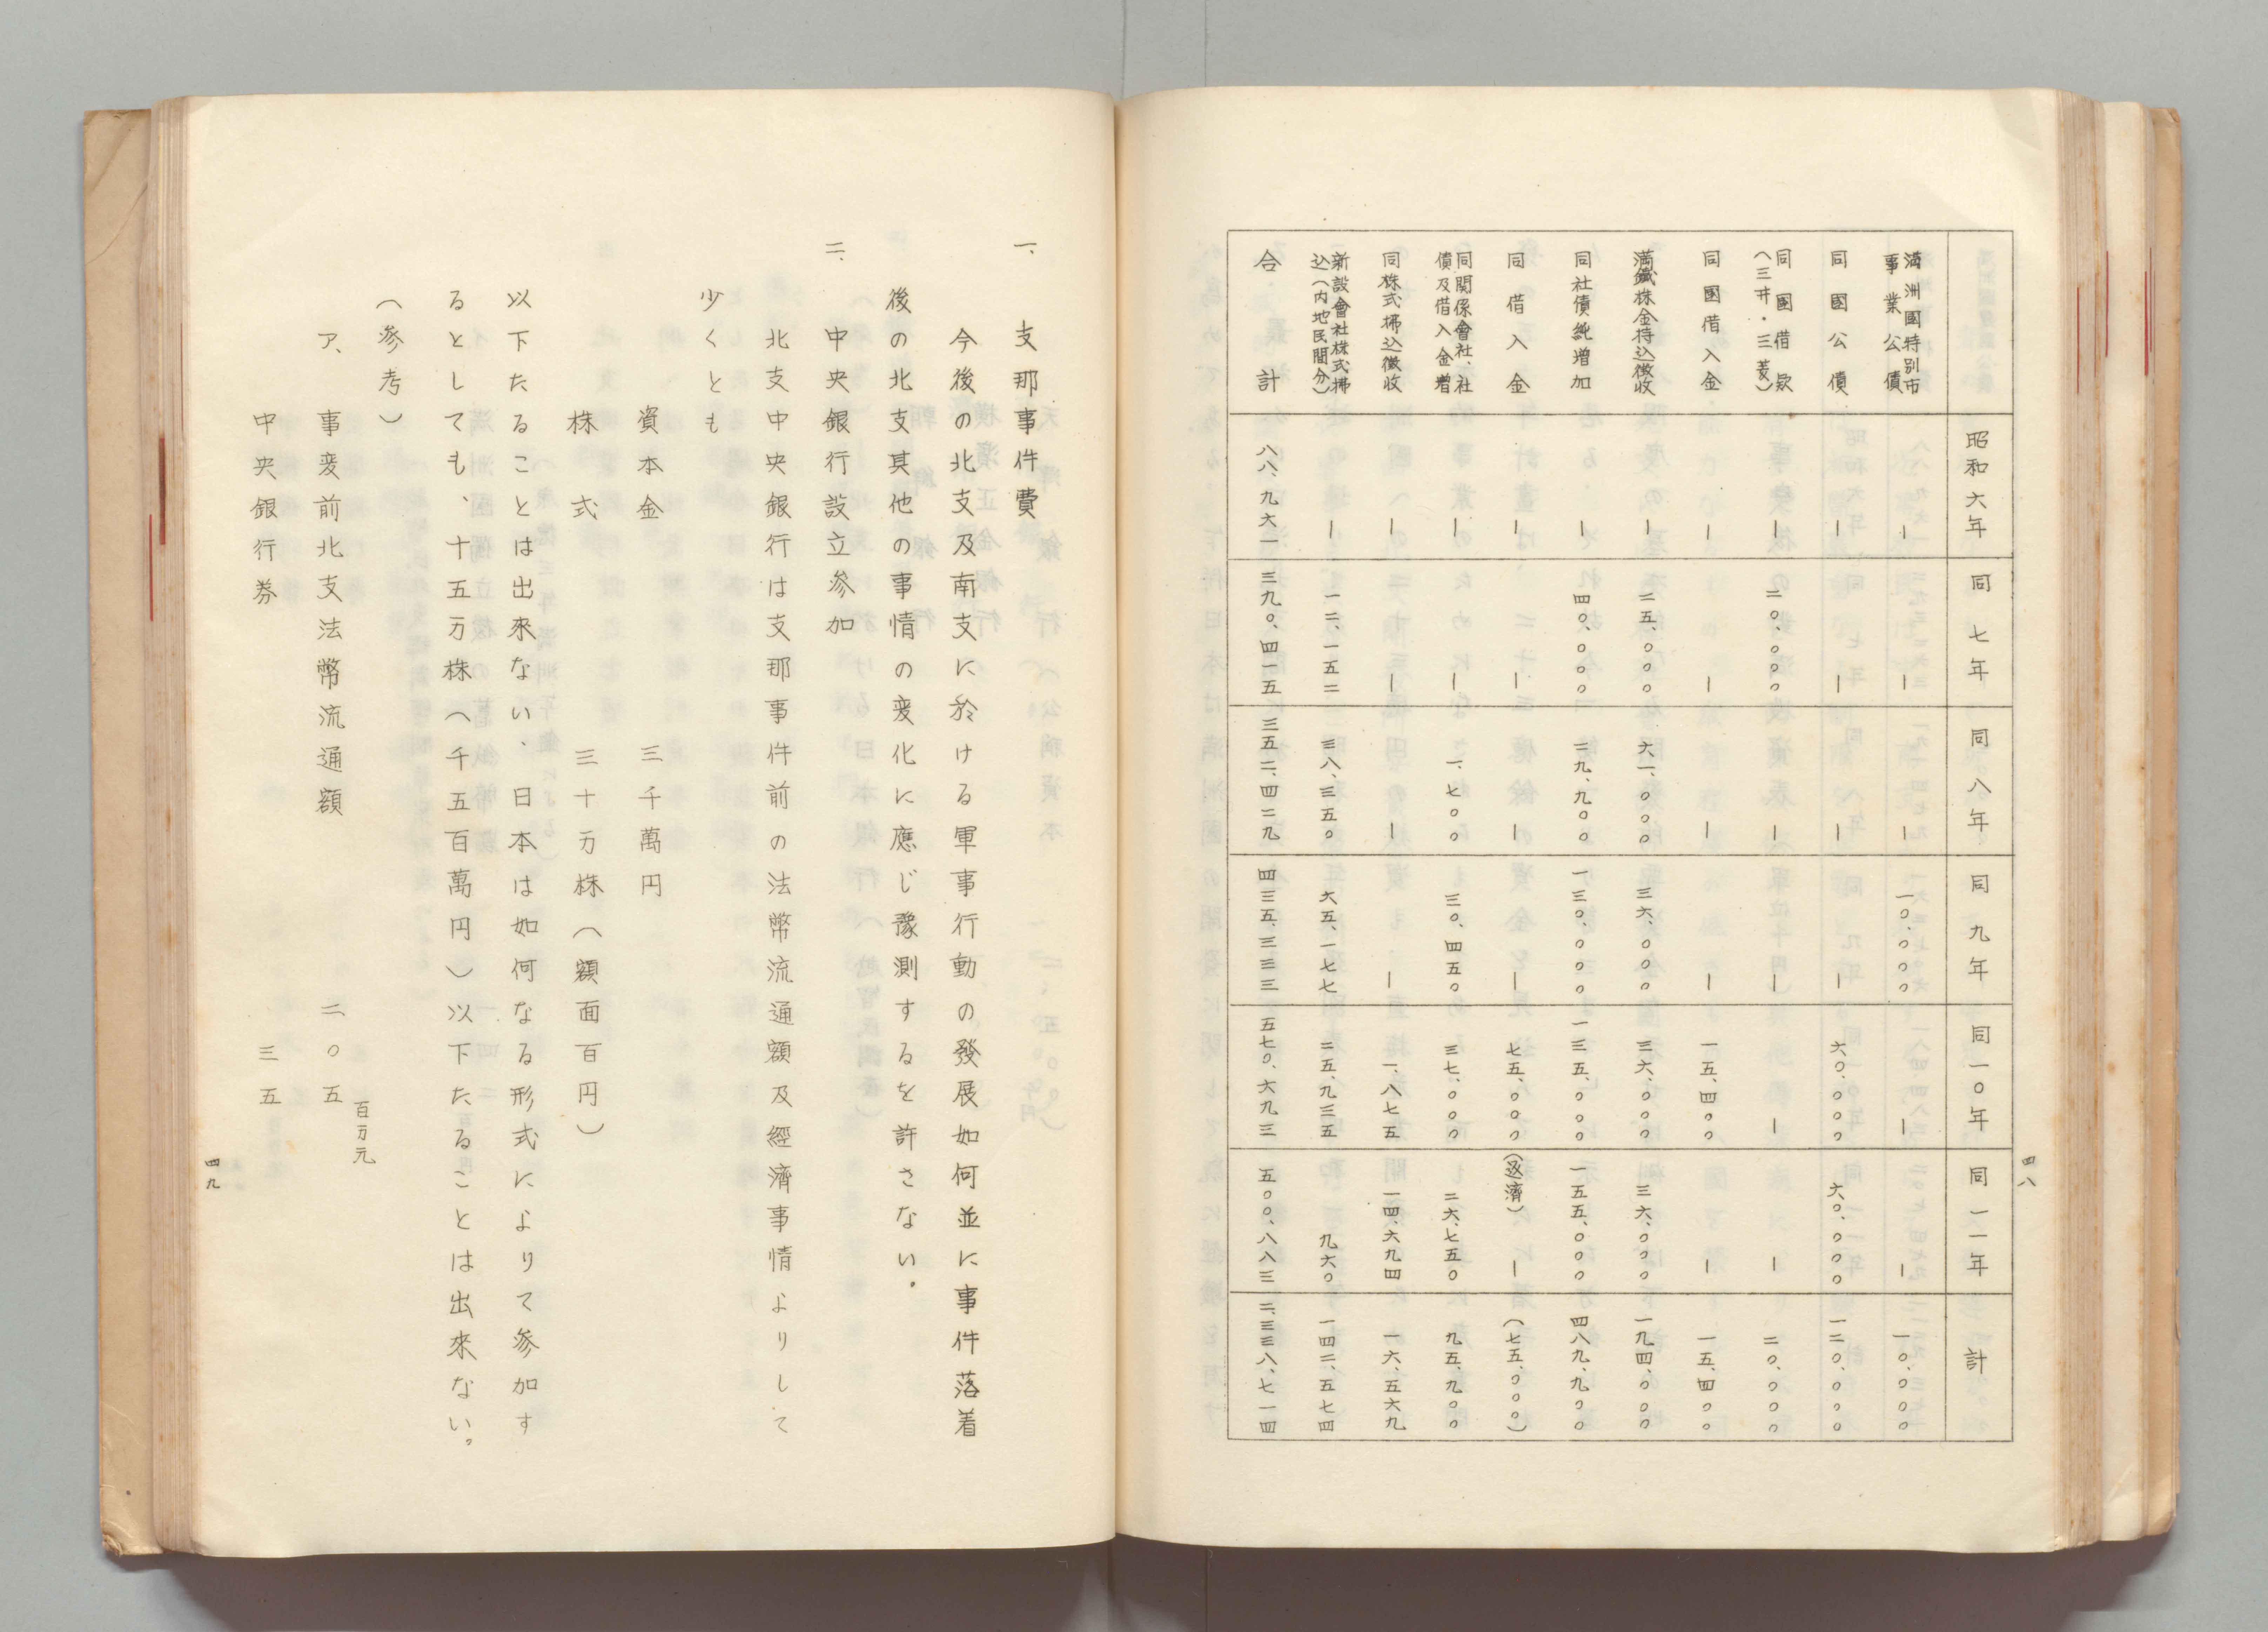 四八
昭和六年 同七年 同八年 同九年 同一〇年 同一一年 計
満洲國特別市
事業公債 ー ー ー 一〇、〇〇〇 ー ー 一〇、〇〇〇
同國公債 ー ー ー ー 六〇、〇〇〇 六〇、〇〇〇 一二〇、〇〇〇
同國借款
（三井・三菱） ー 二〇、〇〇〇 ー ー ー ー 二〇、〇〇〇
同國借入金 ー ー ー ー 一五、四〇〇 ー 一五、四〇〇
満鐵株金持込徴收 ー 二五、〇〇〇 六一、〇〇〇 三六、〇〇〇 三六、〇〇〇 三六、〇〇〇 一九四、〇〇〇
同社債純増加 ー 四〇、〇〇〇 二九、九〇〇 一三〇、〇〇〇 一三五、〇〇〇 一五五、〇〇〇 四八九、九〇〇
同借入金 ー ー ー ー 七五、〇〇〇 （返濟）ー （七五、〇〇〇）
同関係會社、社
債及借入金増 ー ー 一、七〇〇 三〇、四五〇 三七、〇〇〇 二六、七五〇 九五、九〇〇
同株式拂込徴收 ー ー ー ー 一、八七五 一四、六九四 一六、五六九
新設會社株式拂
込（内地民間分） ー 一二、一五二 三八、三五〇 六五、一七七 二五、九三五 九六〇 一四二、五七四
合計 八八、九六一 三九〇、四一五 三五二、四二九 四三五、三三三 五七〇、六九三 五〇〇、八八三 二、三三八、七一四
一、支那事件費
今後の北支及南支に於ける軍事行動の發展如何並に事件落着
後の北支其他の事情の変化に應じ豫測するを許さない。
二、中央銀行設立参加
北支中央銀行は支那事件前の法幣流通額及經濟事情よりして
少くとも
資本金 三千萬円
株式 三十万株（額面百円）
以下たることは出來ない、日本は如何なる形式によりて参加す
るとしても、十五万株（千五百萬円）以下たることは出來ない。
（参考）
百万元
ア、事変前北支法幣流通額 二〇五
中央銀行券 三五
四九